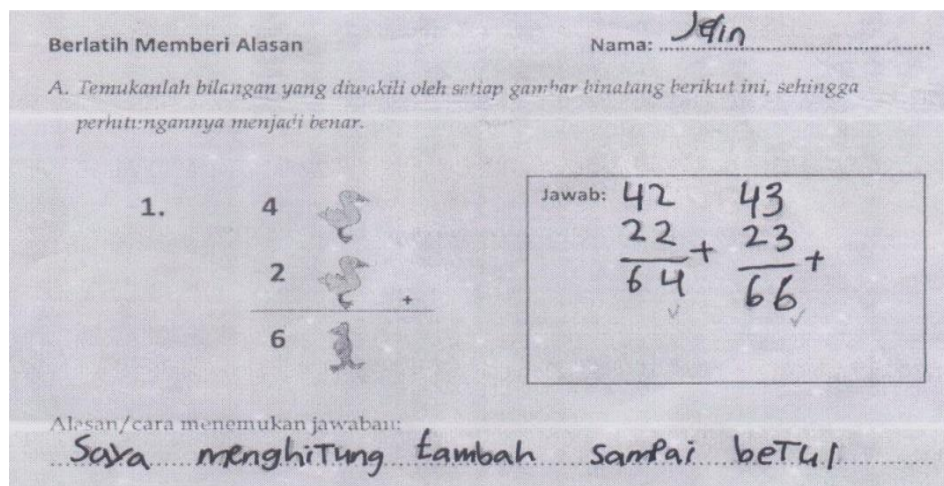 Berlatih Memberi Alasan
Nama: Jein
A. Temukanlah bilangan yang diwakili oleh setiap gambar binatang berikut ini, sehingga
perhitungannya menjadi benar.
1.
4
2
+
6
Jawab: 42 43
22 + 23 +
64 66
Alasan/cara menemukan jawaban:
Saya menghiTung tambah Sampai beTul